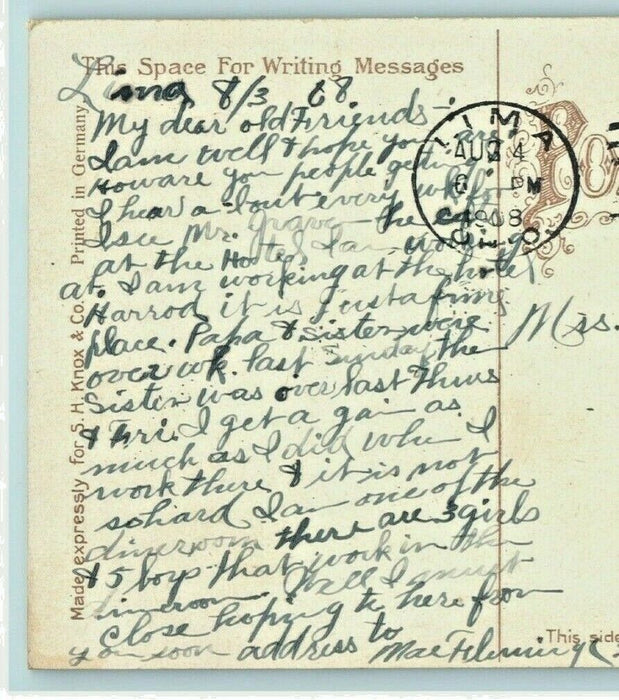 This Space For Writing Messages
Lima 8/3 08
My dear old Friends—:
I am well & hope you are,
How are you people getting
I hear a bout every wk for
I see Mr. the
at the Hotel I am working
at. I am working at the hotel
Harrod it is just a fine
place. Papa & Sister were
over wk. last Sunday the
Sister was over last Thurs
& Fri. I get a gain as
much as I did when I
work there & it is not
so hard I am one of the
dineroom there are 3 girls
& 5 boys that work in the
dineroom. Well I must
Close hoping to here from
you soon address to Mae Fleming
Made expressly for S. H. Knox & Co. Printed in Germany
LIMA
AUG 4
6 PM
1908
OHIO
Miss.
This side